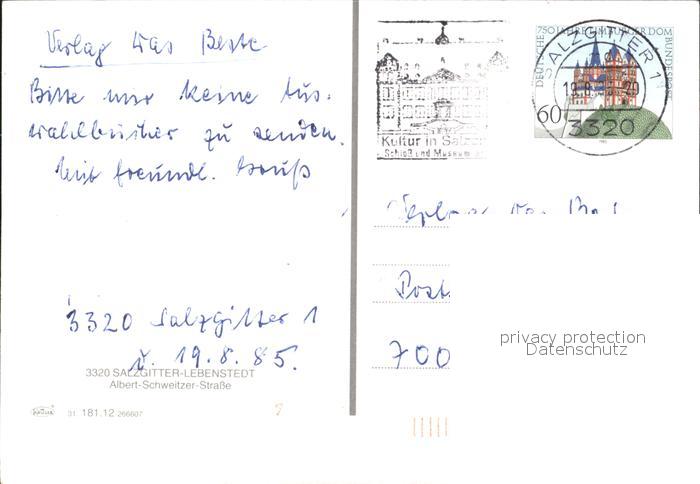 Verlag das Beste
Bitte nur keine Aus-
wahlbücher zu senden.
Mit freundl. Gruß
3320 Salzgitter 1
d. 19.8.85.
3320 SALZGITTER-LEBENSTEDT
Albert-Schweitzer-Straße
KRÜGER 31 181.12 266607
Kultur in Salz
Schloß und Museum
750 JAHRE LIMBURGER DOM
DEUTSCHE BUNDESPOST
60
SALZGITTER 1
3320
Verlag das Best
Post
700
privacy protection
Datenschutz